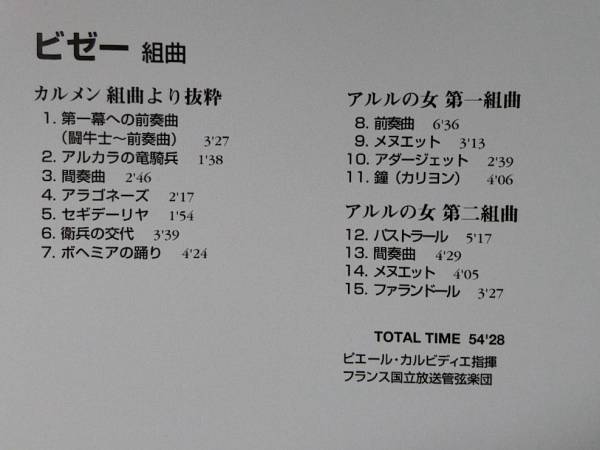 ビゼー 組曲
カルメン 組曲より抜粋
1. 第一幕への前奏曲
（闘牛士〜前奏曲） 3'27
2. アルカラの竜騎兵 1'38
3. 間奏曲 2'46
4. アラゴネーズ 2'17
5. セギデーリヤ 1'54
6. 衛兵の交代 3'39
7. ボヘミアの踊り 4'24
アルルの女 第一組曲
8. 前奏曲 6'36
9. メヌエット 3'13
10. アダージェット 2'39
11. 鐘（カリヨン） 4'06
アルルの女 第二組曲
12. パストラール 5'17
13. 間奏曲 4'29
14. メヌエット 4'05
15. ファランドール 3'27
TOTAL TIME 54'28
ピエール・カルビディエ指揮
フランス国立放送管弦楽団